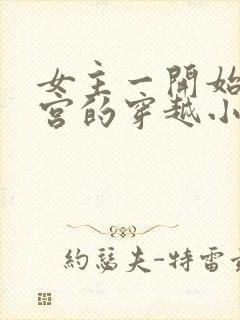 女主一開始
宮的穿越小
約瑟夫-特雷